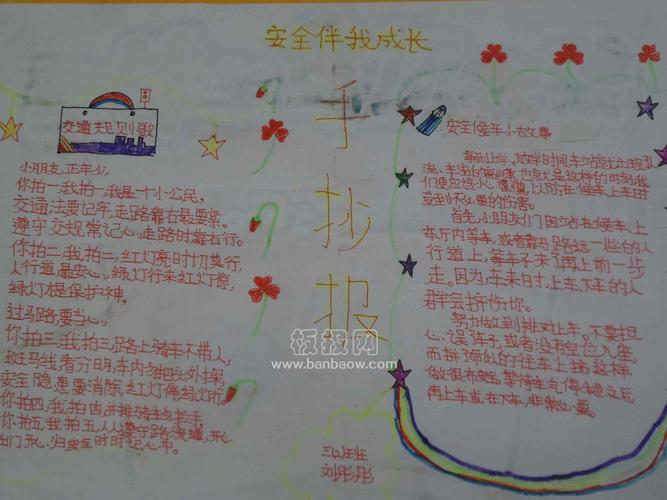 安全伴我成长
手
抄
报
交通规则歌
小朋友,正年少,
你拍一,我拍一,我是一个小公民,
交通法要记牢,走路靠右最要紧。
遵守交规常记心,走路时靠右行。
你拍二,我拍二,红灯亮时切莫行,
人行道,最安心,绿灯行来红灯停,
绿灯才是保护神,
过马路,要当心,
你拍三,我拍三,路上骑车不带人,
斑马线,看分明,车内勿把头外探,
安全隐患要消除,红灯停绿灯行。
你拍四,我拍四,
你拍五,我拍五,人人遵守
出门开心,归安全时时记心中。
安全候车小故事
每到上学、放学时间,车站
首先,小朋友们因该在候车上
车厅内等车,或者靠马路远一些的人
行道上,等车子来了再上前一步
走。因为,车来日时,上车、下车的人
群会挤伤你。
努力做到排对上车。不要担
心、误了车子,或者没有座位、
而拼命似的往车上挤,这样
做很有,等待车气停稳之后
再上车或在下车,非常必要。
三班
刘彤彤
板报网
www.banbaow.com